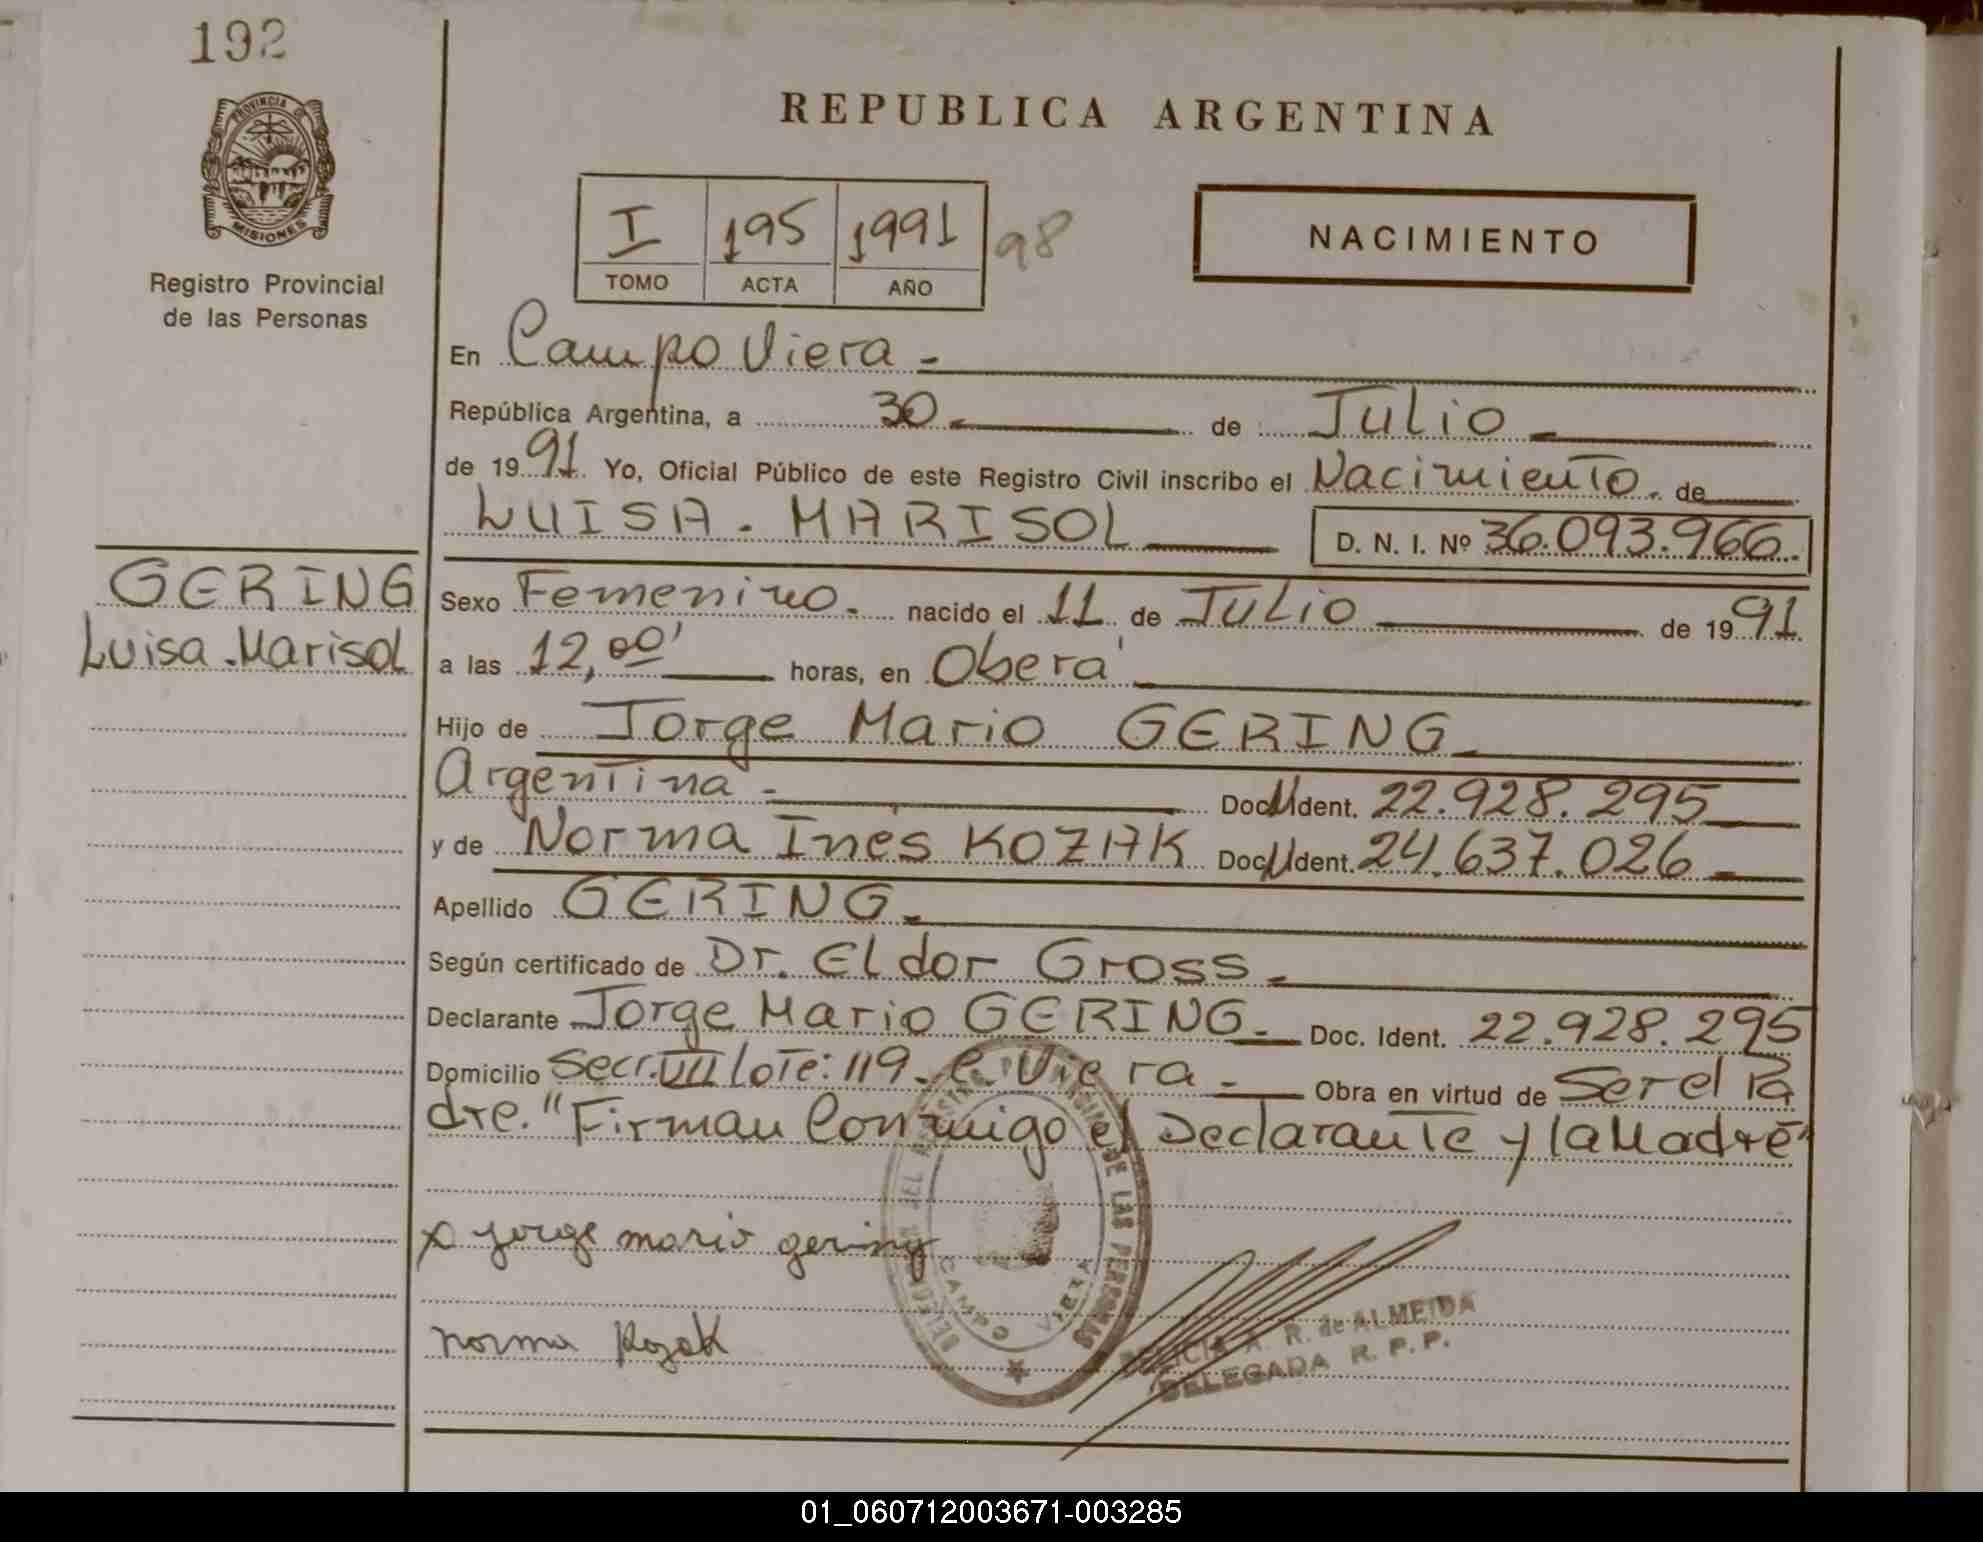 192
PROVINCIA DE
MISIONES
Registro Provincial
de las Personas
REPUBLICA ARGENTINA
I 195 1991 98
TOMO ACTA AÑO
NACIMIENTO
En Campo Viera -
República Argentina, a 30 de Julio
de 1991. Yo, Oficial Público de este Registro Civil inscribo el Nacimiento. de
LUISA - MARISOL D. N. I. Nº 36.093.966.
GERING
Luisa - Marisol
Sexo Femenino. nacido el 11 de Julio de 1991.
a las 12,00' horas, en Oberá
Hijo de Jorge Mario GERING
Argentina - Doc. Ident. 22.928.295
y de Norma Inés KOZAK Doc. Ident. 24.637.026
Apellido GERING.
Según certificado de Dr. Eldor Gross.
Declarante Jorge Mario GERING. Doc. Ident. 22.928.295
Domicilio Secc. VIII lote: 119. C. Viera. Obra en virtud de Ser el Pa
dre. "Firman Conmigo el Declarante y la Madre"
x jorge mario gering
norma Kozak
DE LAS PERSONAS
CAMPO VIERA
A. R. de ALMEIDA
DELEGADA R. P. P.
01_060712003671-003285